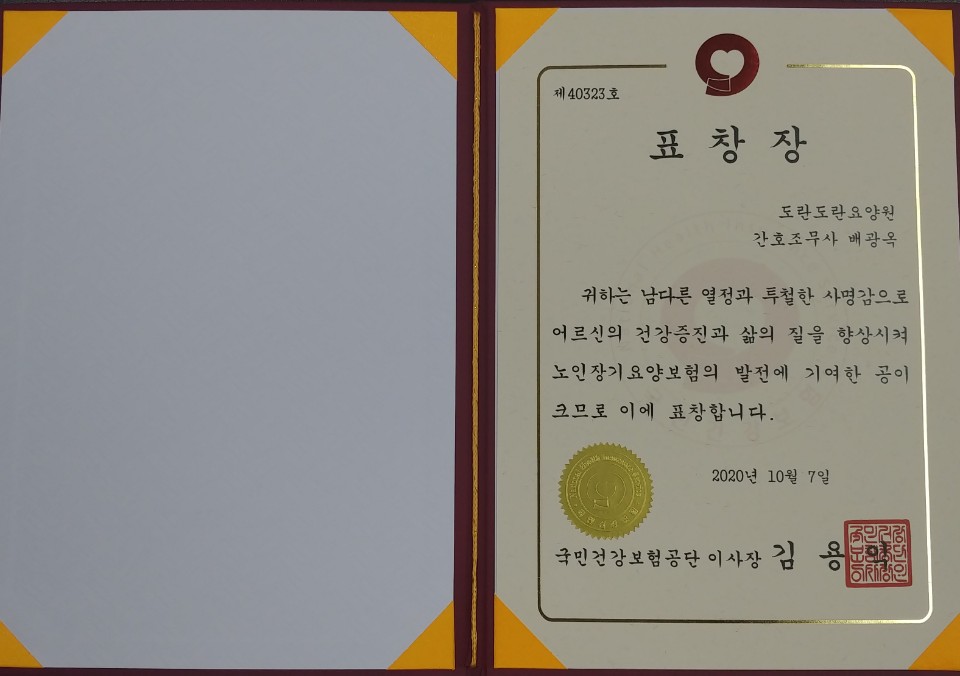 제40323호
표창장
도란도란요양원
간호조무사 배광옥
귀하는 남다른 열정과 투철한 사명감으로
어르신의 건강증진과 삶의 질을 향상시켜
노인장기요양보험의 발전에 기여한 공이
크므로 이에 표창합니다.
2020년 10월 7일
국민건강보험공단 이사장 김용익